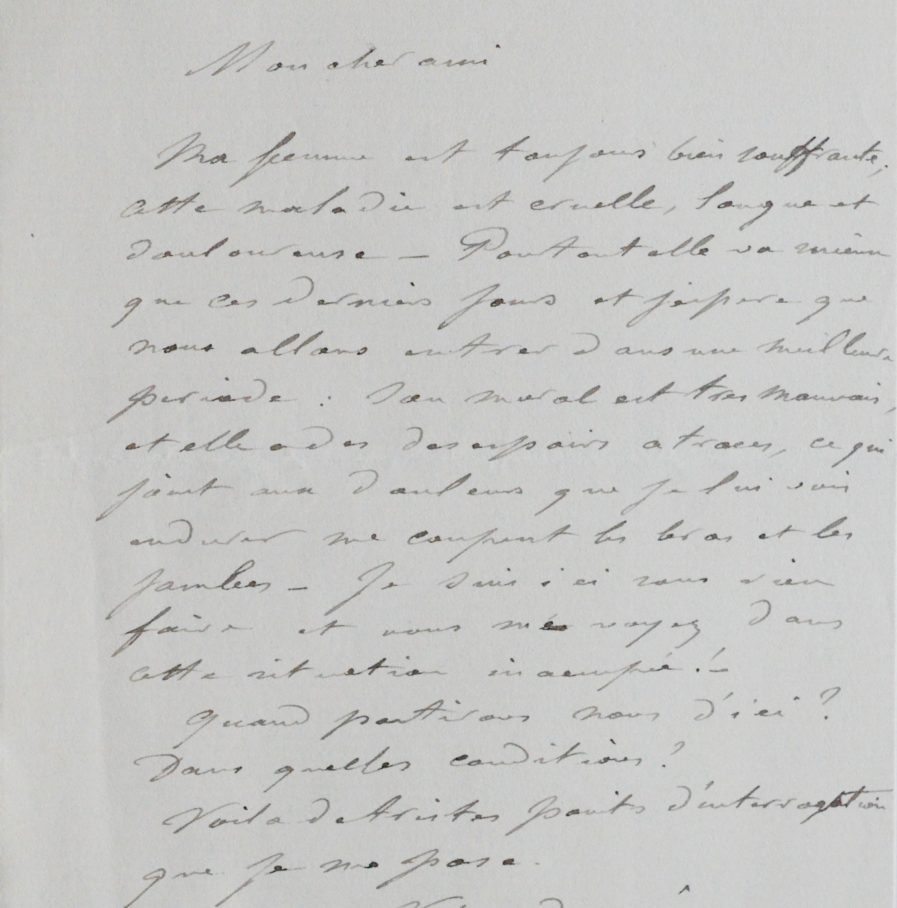 Mon cher ami
Ma femme est toujours bien souffrante,
cette maladie est cruelle, longue et
douloureuse — Pourtant elle va mieux
que ces derniers jours et j'espere que
nous allons entrer dans une meilleure
periode : Son moral est tres mauvais,
et elle a des desespoirs atroces, ce qui
joint aux douleurs que je lui vois
endurer me coupent les bras et les
jambes — Je suis ici sans rien
faire et vous me voyez dans
cette situation inoccupé !—
Quand partirons nous d'ici ?
Dans quelles conditions ?
Voila de tristes points d'interrogation
que je me pose.